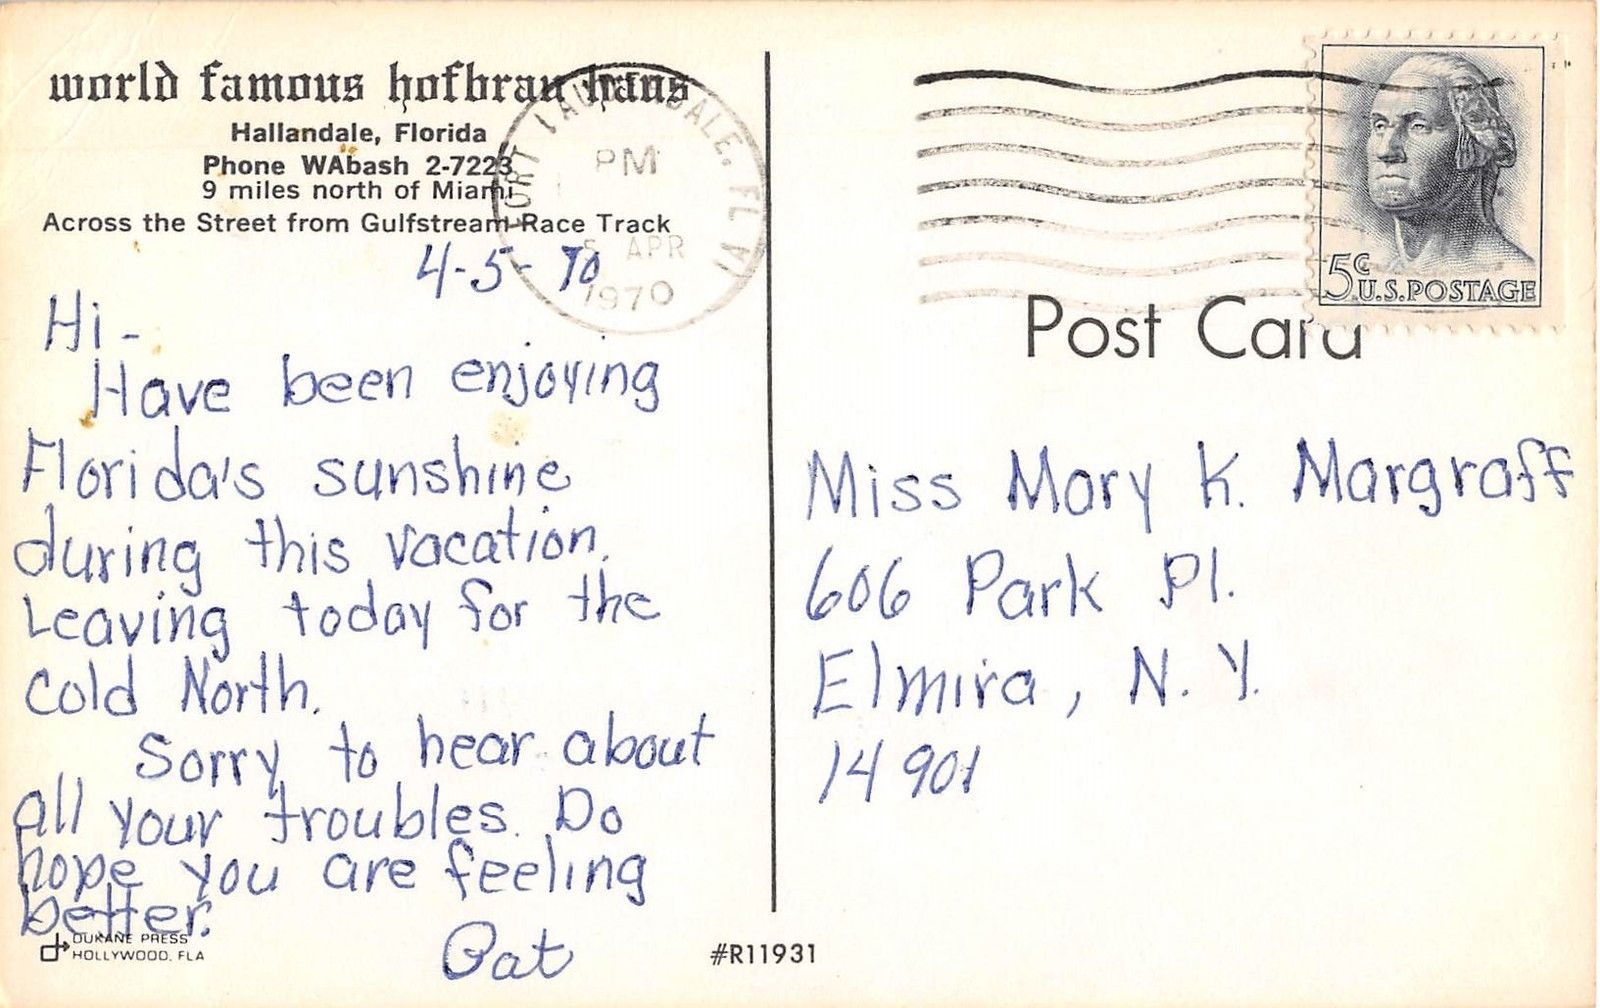 world famous hofbrau haus
Hallandale, Florida
Phone WAbash 2-7223
9 miles north of Miami
Across the Street from Gulfstream Race Track
FORT LAUDERDALE, FL
PM
5 APR
1970
4-5-70
Hi-
Have been enjoying
Florida's sunshine
during this vacation.
Leaving today for the
cold North.
Sorry to hear about
all your troubles. Do
hope you are feeling
better.
Pat
DUKANE PRESS
HOLLYWOOD. FLA
#R11931
5c U.S. POSTAGE
Post Card
Miss Mary K. Margraff
606 Park Pl.
Elmira, N. Y.
14901